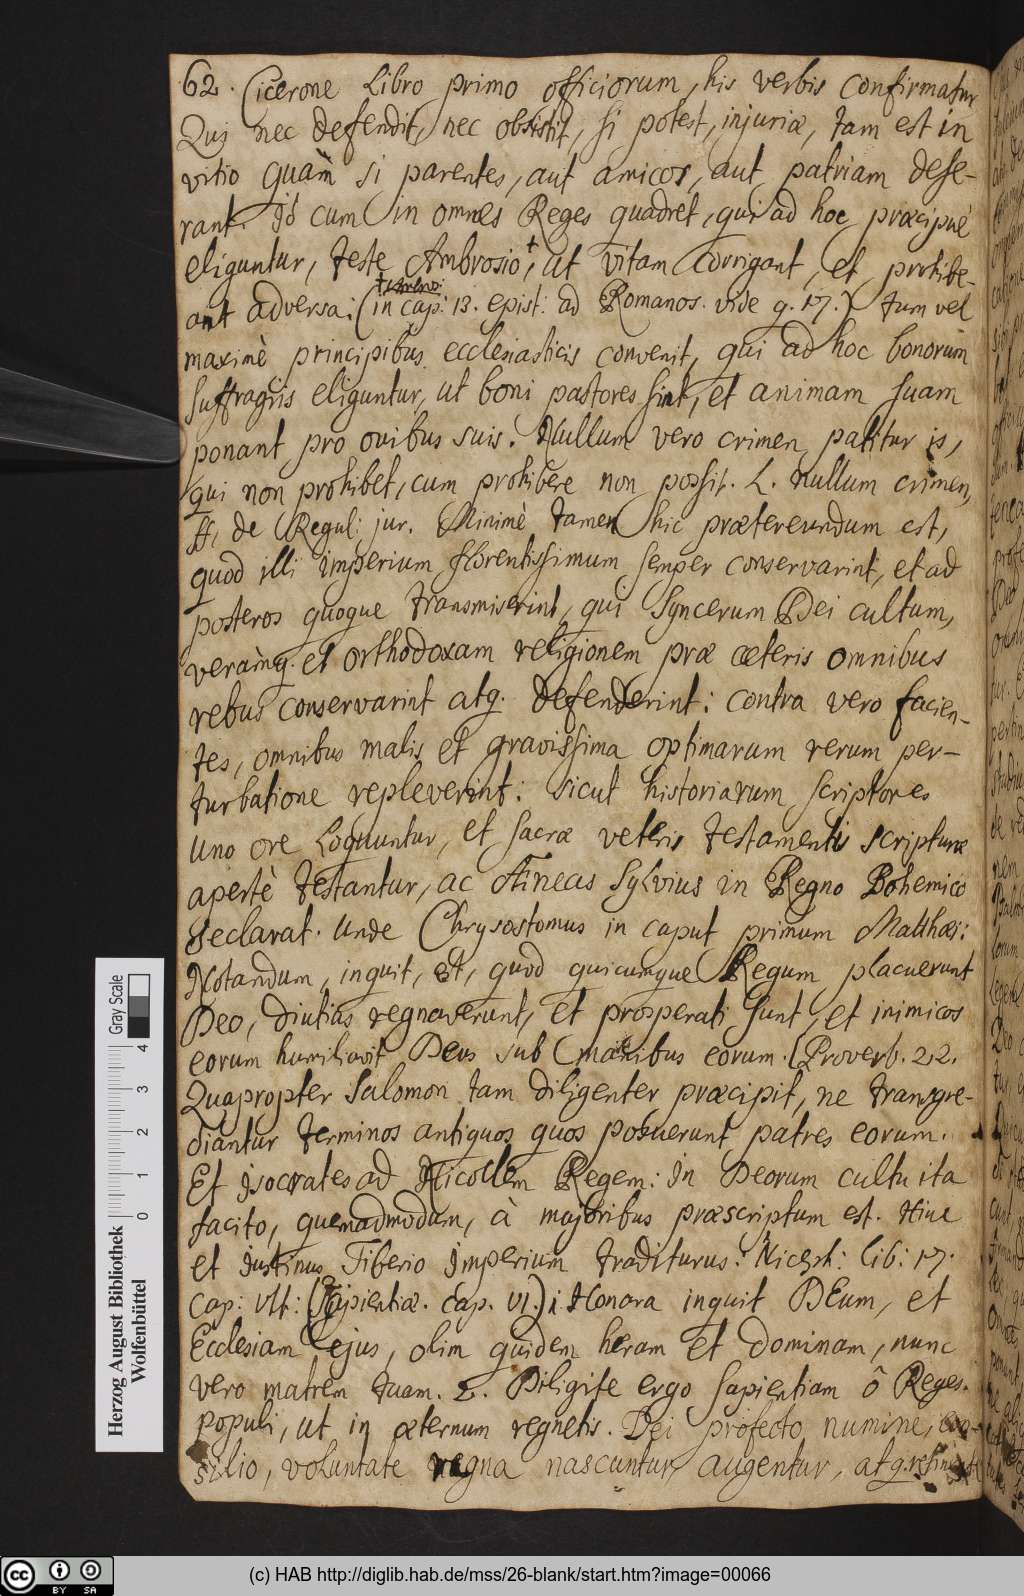 62. Cicerone Libro primo officiorum, his verbis confirmatur
Qui nec defendit, nec obsistit, si potest, injuriæ, tam est in
vitio quàm si parentes, aut amicos, aut patriam dese-
rant. Id cum in omnes Reges quadret, qui ad hoc præcipuè
eliguntur, teste Ambrosio,† ut vitam corrigant, et prohibe-
ant adversa: (in cap: 13. epist: ad Romanos. vide q. 17.) tum vel
maximè principibus ecclesiasticis convenit, qui ad hoc bonorum
suffragiis eliguntur, ut boni pastores sint, et animam suam
ponant pro ovibus suis. Nullum vero crimen patitur is,
qui non prohibet, cum prohibere non possit. L. nullum crimen,
ff. de Regul: jur. Minimè tamen hic prætereundum est,
quod illi imperium florentissimum semper conservarint, et ad
posteros quoque transmiserint, qui syncerum Dei cultum,
veramq. et orthodoxam religionem præ cæteris omnibus
rebus conservarint atq. defenderint: contra vero facien-
tes, omnibus malis et gravissima optimarum rerum per-
turbatione repleverint: sicut historiarum scriptores
uno ore loquuntur, et sacræ veteris testamenti scripturæ
apertè testantur, ac Æneas Sylvius in Regno Bohemico
declarat. Unde Chrysostomus in caput primum Matthæi:
Notandum, inquit, est, quod quicunque Regum placuerunt
Deo, diutius regnaverunt, et prosperati sunt, et inimicos
eorum humiliavit Deus sub manibus eorum. (Proverb. 22.
Quapropter Salomon tam diligenter præcipit, ne transgre-
diantur terminos antiquos quos posuerunt patres eorum.
Et Isocrates ad Nicoclem Regem: In Deorum cultu ita
facito, quemadmodum, à majoribus præscriptum est. Hinc
et Justinus Tiberio Imperium traditurus: Niceph: lib: 17.
cap: ult: (Sapientiæ. cap. VI.) Honora inquit DEum, et
Ecclesiam ejus, olim quidem heram et dominam, nunc
vero matrem tuam. 2. Diligite ergo sapientiam ô Reges.
populi, ut in æternum regnetis. Dei profecto numine, con-
silio, voluntate regna nascuntur, augentur, atq. retinent
Herzog August Bibliothek
Wolfenbüttel
0 1 2 3 4
Gray Scale
(c) HAB http://diglib.hab.de/mss/26-blank/start.htm?image=00066